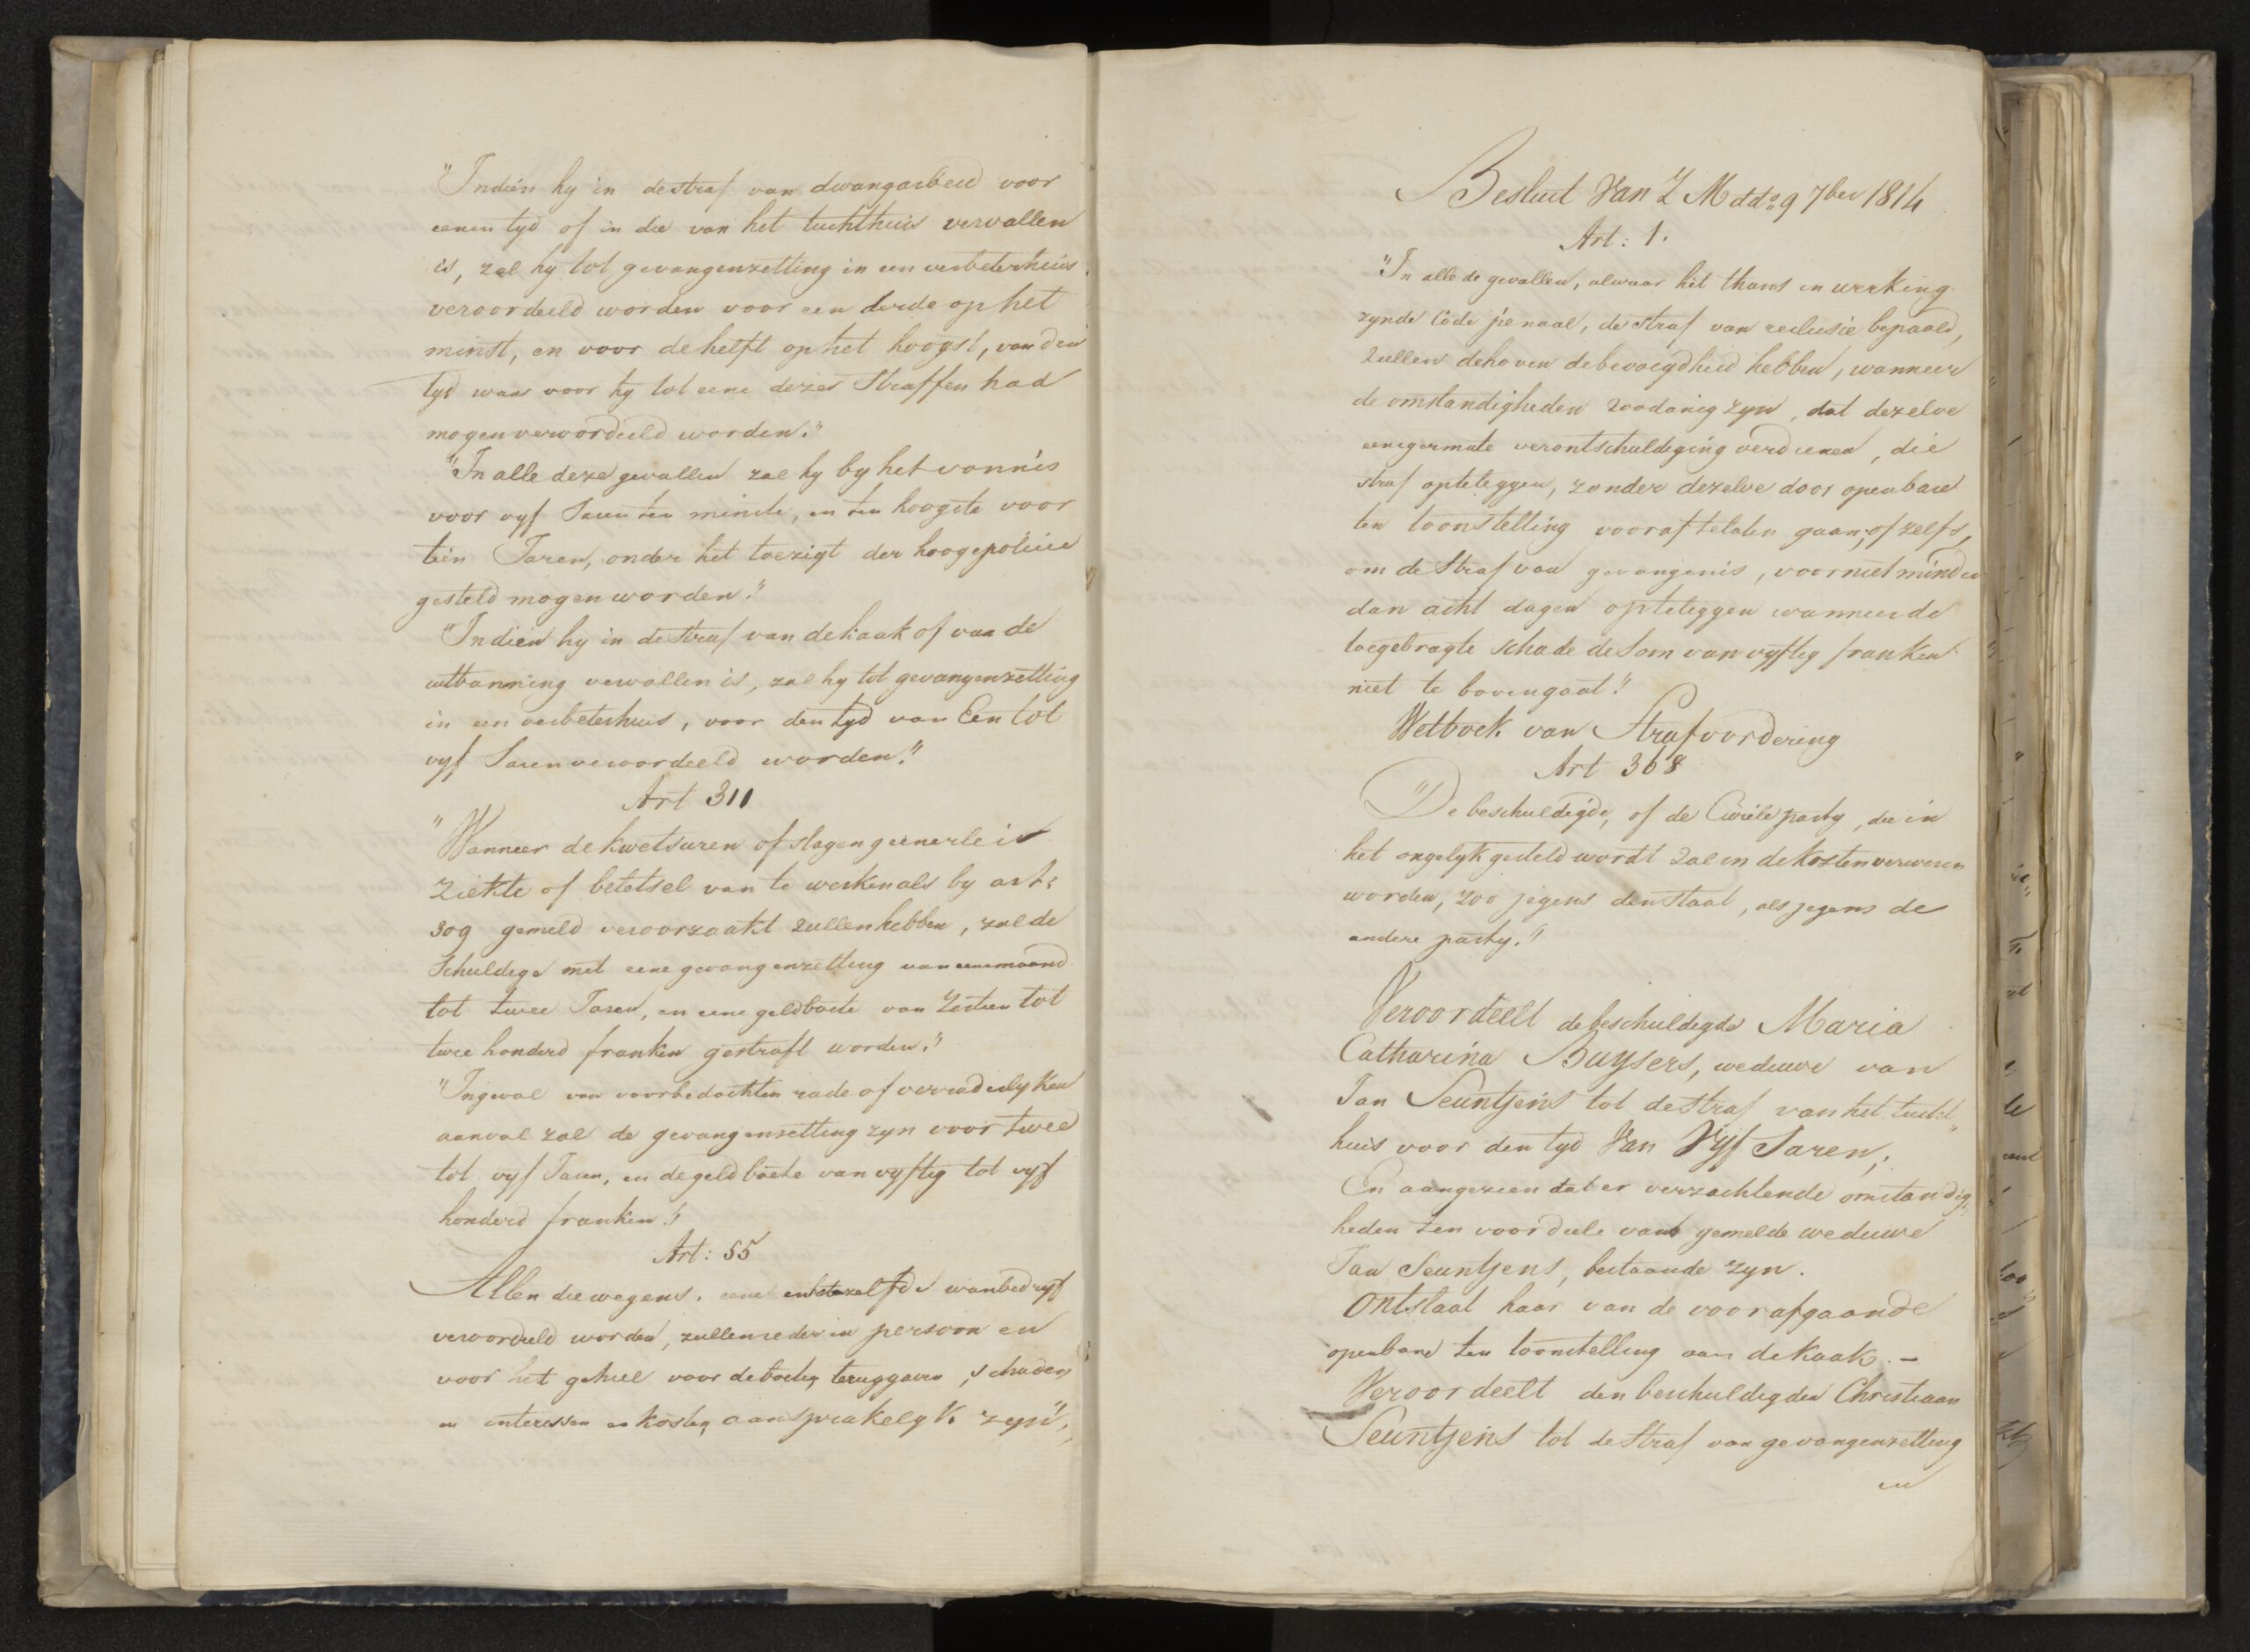 "Indien hy in de straf van dwangarbeid voor
eenen tyd of in die van het tuchthuis vervallen
is, zal hy tot gevangenzetting in een verbeterhuis
veroordeeld worden voor een derde op het
minst, en voor de helft op het hoogst, van den
tyd waar voor hy tot eene dezer Straffen had
mogen veroordeeld worden."
"In alle deze gevallen zal hy by het vonnis
voor vyf Jaren ten minste, en ten hoogste voor
tien Jaren, onder het toezigt der hooge policie
gesteld mogen worden."
"Indien hy in de straf van de kaak of van de
uitbanning vervallen is, zal hy tot gevangenzetting
in een verbeterhuis, voor den tyd van Een tot
vyf Jaren veroordeeld worden."
Art 311
"Wanneer de kwetsuren of slagen geenerlei
ziekte of beletsel van te werken als by art:
309 gemeld veroorzaakt zullen hebben, zal de
Schuldige met eene gevangenzetting van eene maand
tot twee Jaren, en eene geldboete van Zestien tot
twee honderd franken gestraft worden."
"Ingeval van voorbedachten rade of verradelyken
aanval zal de gevangenzetting zyn voor twee
tot vyf Jaren, en de geldboete van vyftig tot vyf
honderd franken."
Art: 55
Allen die wegens eene en dezelfde wanbedryf
veroordeeld worden, zullen ieder in persoon en
voor het geheel voor de boeten, teruggaven, schaden
en interessen en kosten aansprakelyk zyn",
Besluit Van Z M ddo 9 7ber 1814
Art: 1.
"In alle de gevallen, alwaar het thans in werking
zynde Code penaal, de straf van reclusie bepaald,
zullen de hoven de bevoegdheid hebben, wanneer
de omstandigheden zoodanig zyn, dat dezelve
eenigermate verontschuldiging verdienen, die
straf opteleggen, zonder dezelve door openbare
ten toonstelling vooraf te laten gaan, of zelfs,
om de Straf van gevangenis, voor niet minder
dan acht dagen opteleggen wanneer de
toegebragte schade de Som van vyftig franken
niet te boven gaat."
Wetboek van Strafvordering
Art 368
"De beschuldigde, of de Civiele party, die in
het ongelyk gesteld wordt zal in de kosten verwesen
worden, zoo jegens den Staat, als jegens de
andere party."
Veroordeelt de beschuldigde Maria
Catharina Buysers, weduwe van
Jan Seuntjens tot de straf van het tucht„
huis voor den tyd Van Vyf Jaren;
En aangezien dat er verzachtende omstandig„
heden ten voordeele van gemelde weduwe
Jan Seuntjens, bestaande zyn.
Ontslaat haar van de voorafgaande
openbare ten toonstelling aan de kaak. —
Veroordeelt den beschuldigden Christiaan
Seuntjens tot de Straf van gevangenzetting
en